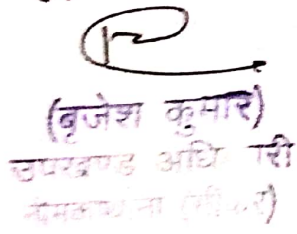 (बृजेश कुमार)
उपखण्ड अधि री
(सीकर)